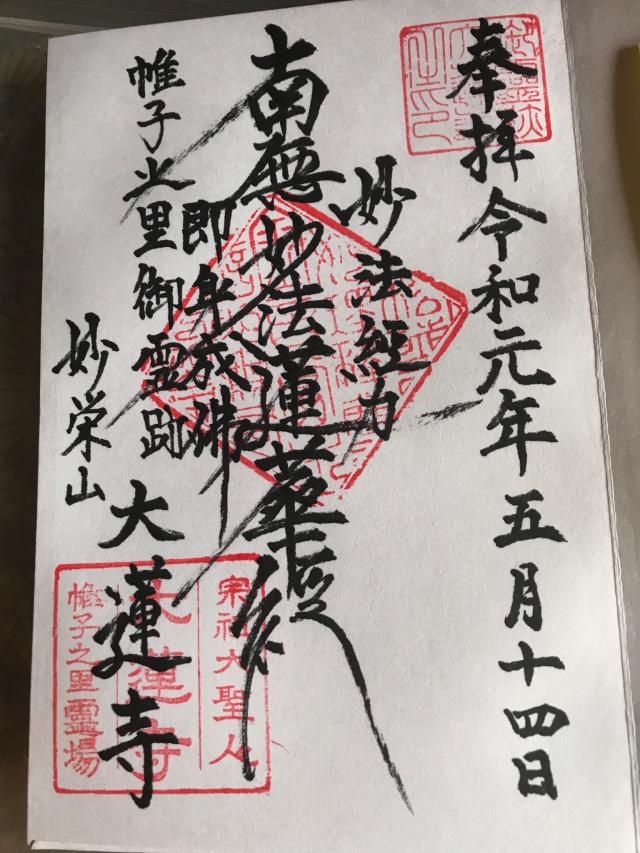 奉拝 令和元年五月十四日
妙法経力
南無妙法蓮華経
即身成佛
帷子之里御霊跡
妙栄山
大蓮寺
宗祖大聖人
大蓮寺
帷子之里霊場